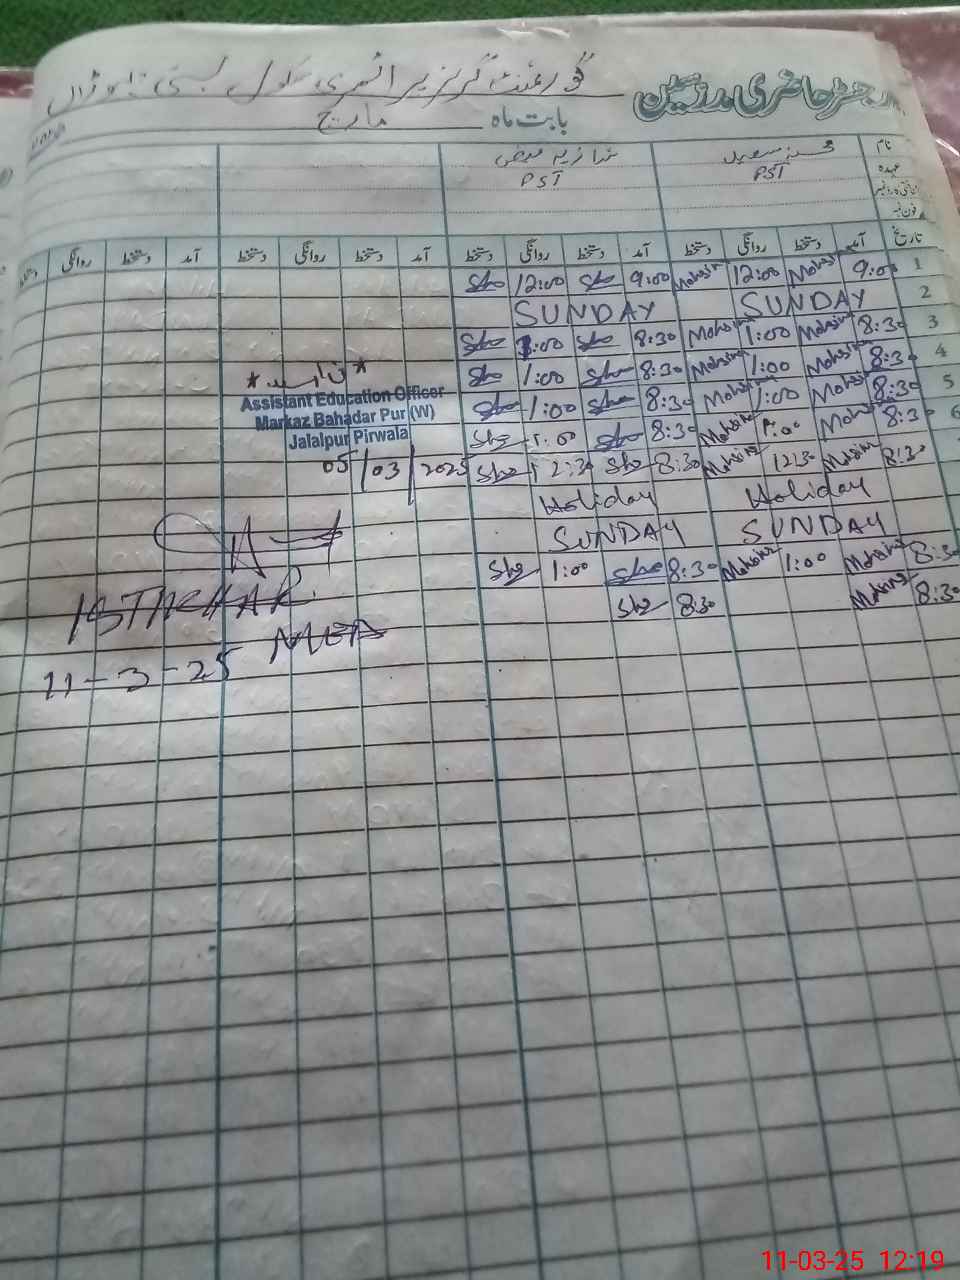 رجسٹر حاضری مدرسین گورنمنٹ گرلز پرائمری سکول بستی
بابت ماہ مارچ
نام محسنہ سعید شازیہ
عہدہ PST PST
فون نمبر
تاریخ آمد دستخط روانگی دستخط آمد دستخط روانگی دستخط آمد دستخط روانگی دستخط آمد دستخط روانگی دستخط
1 9:00 Mohsina 12:00 Mohsina 9:00 Sho 12:00 Sho
2 SUNDAY SUNDAY
3 8:30 Mohsina 1:00 Mohsina 8:30 Sho 1:00 Sho
4 8:30 Mohsina 1:00 Mohsina 8:30 Sho 1:00 Sho
5 8:30 Mohsina 1:00 Mohsina 8:30 Sho 1:00 Sho
6 8:30 Mohsina 1:00 Mohsina 8:30 Sho 1:00 Sho
8:30 Mohsina 12:30 Mohsina 8:30 Sho 12:30 Sho
Holiday Holiday
SUNDAY SUNDAY
8:30 Mohsina 1:00 Mohsina 8:30 Sho 1:00 Sho
8:30 Mohsina 8:30 Sho
Assistant Education Officer
Markaz Bahadar Pur (W)
Jalalpur Pirwala
05/03/2025
11-3-25
11-03-25 12:19